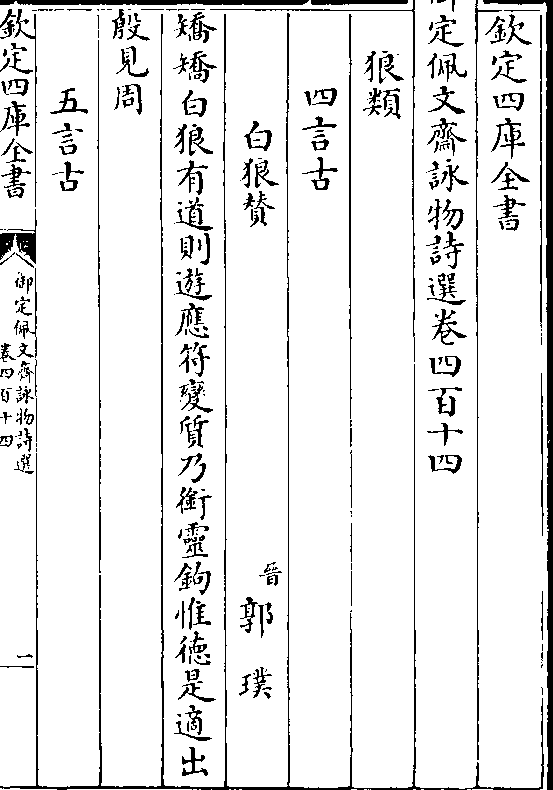 欽定四庫全書
御定佩文齋詠物詩選卷四百十四
狼類
四言古
白狼贊
晉郭璞
矯矯白狼有道則遊應符變質乃銜靈鉤惟德是適出
殷見周
五言古
欽定四庫全書
御定佩文齋詠物詩選
卷四百十四
一